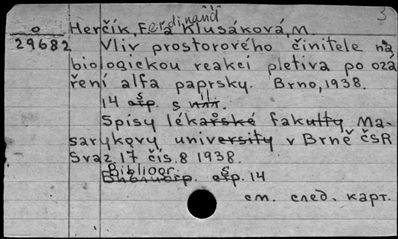 3
o Herčík, Ferdinand a Klusáková, M.
29682 Vliv prostorového činitele na
biologickou reakci pletiva po ozá
ření alfa paprsky. Brno, 1938.
14 s
Spisy lékařské fakulty Ma-
sarykovy university v Brně ČSR
Svaz. 17 čís. 8 1938.
Bibliogr. s. 14
см. след. карт.